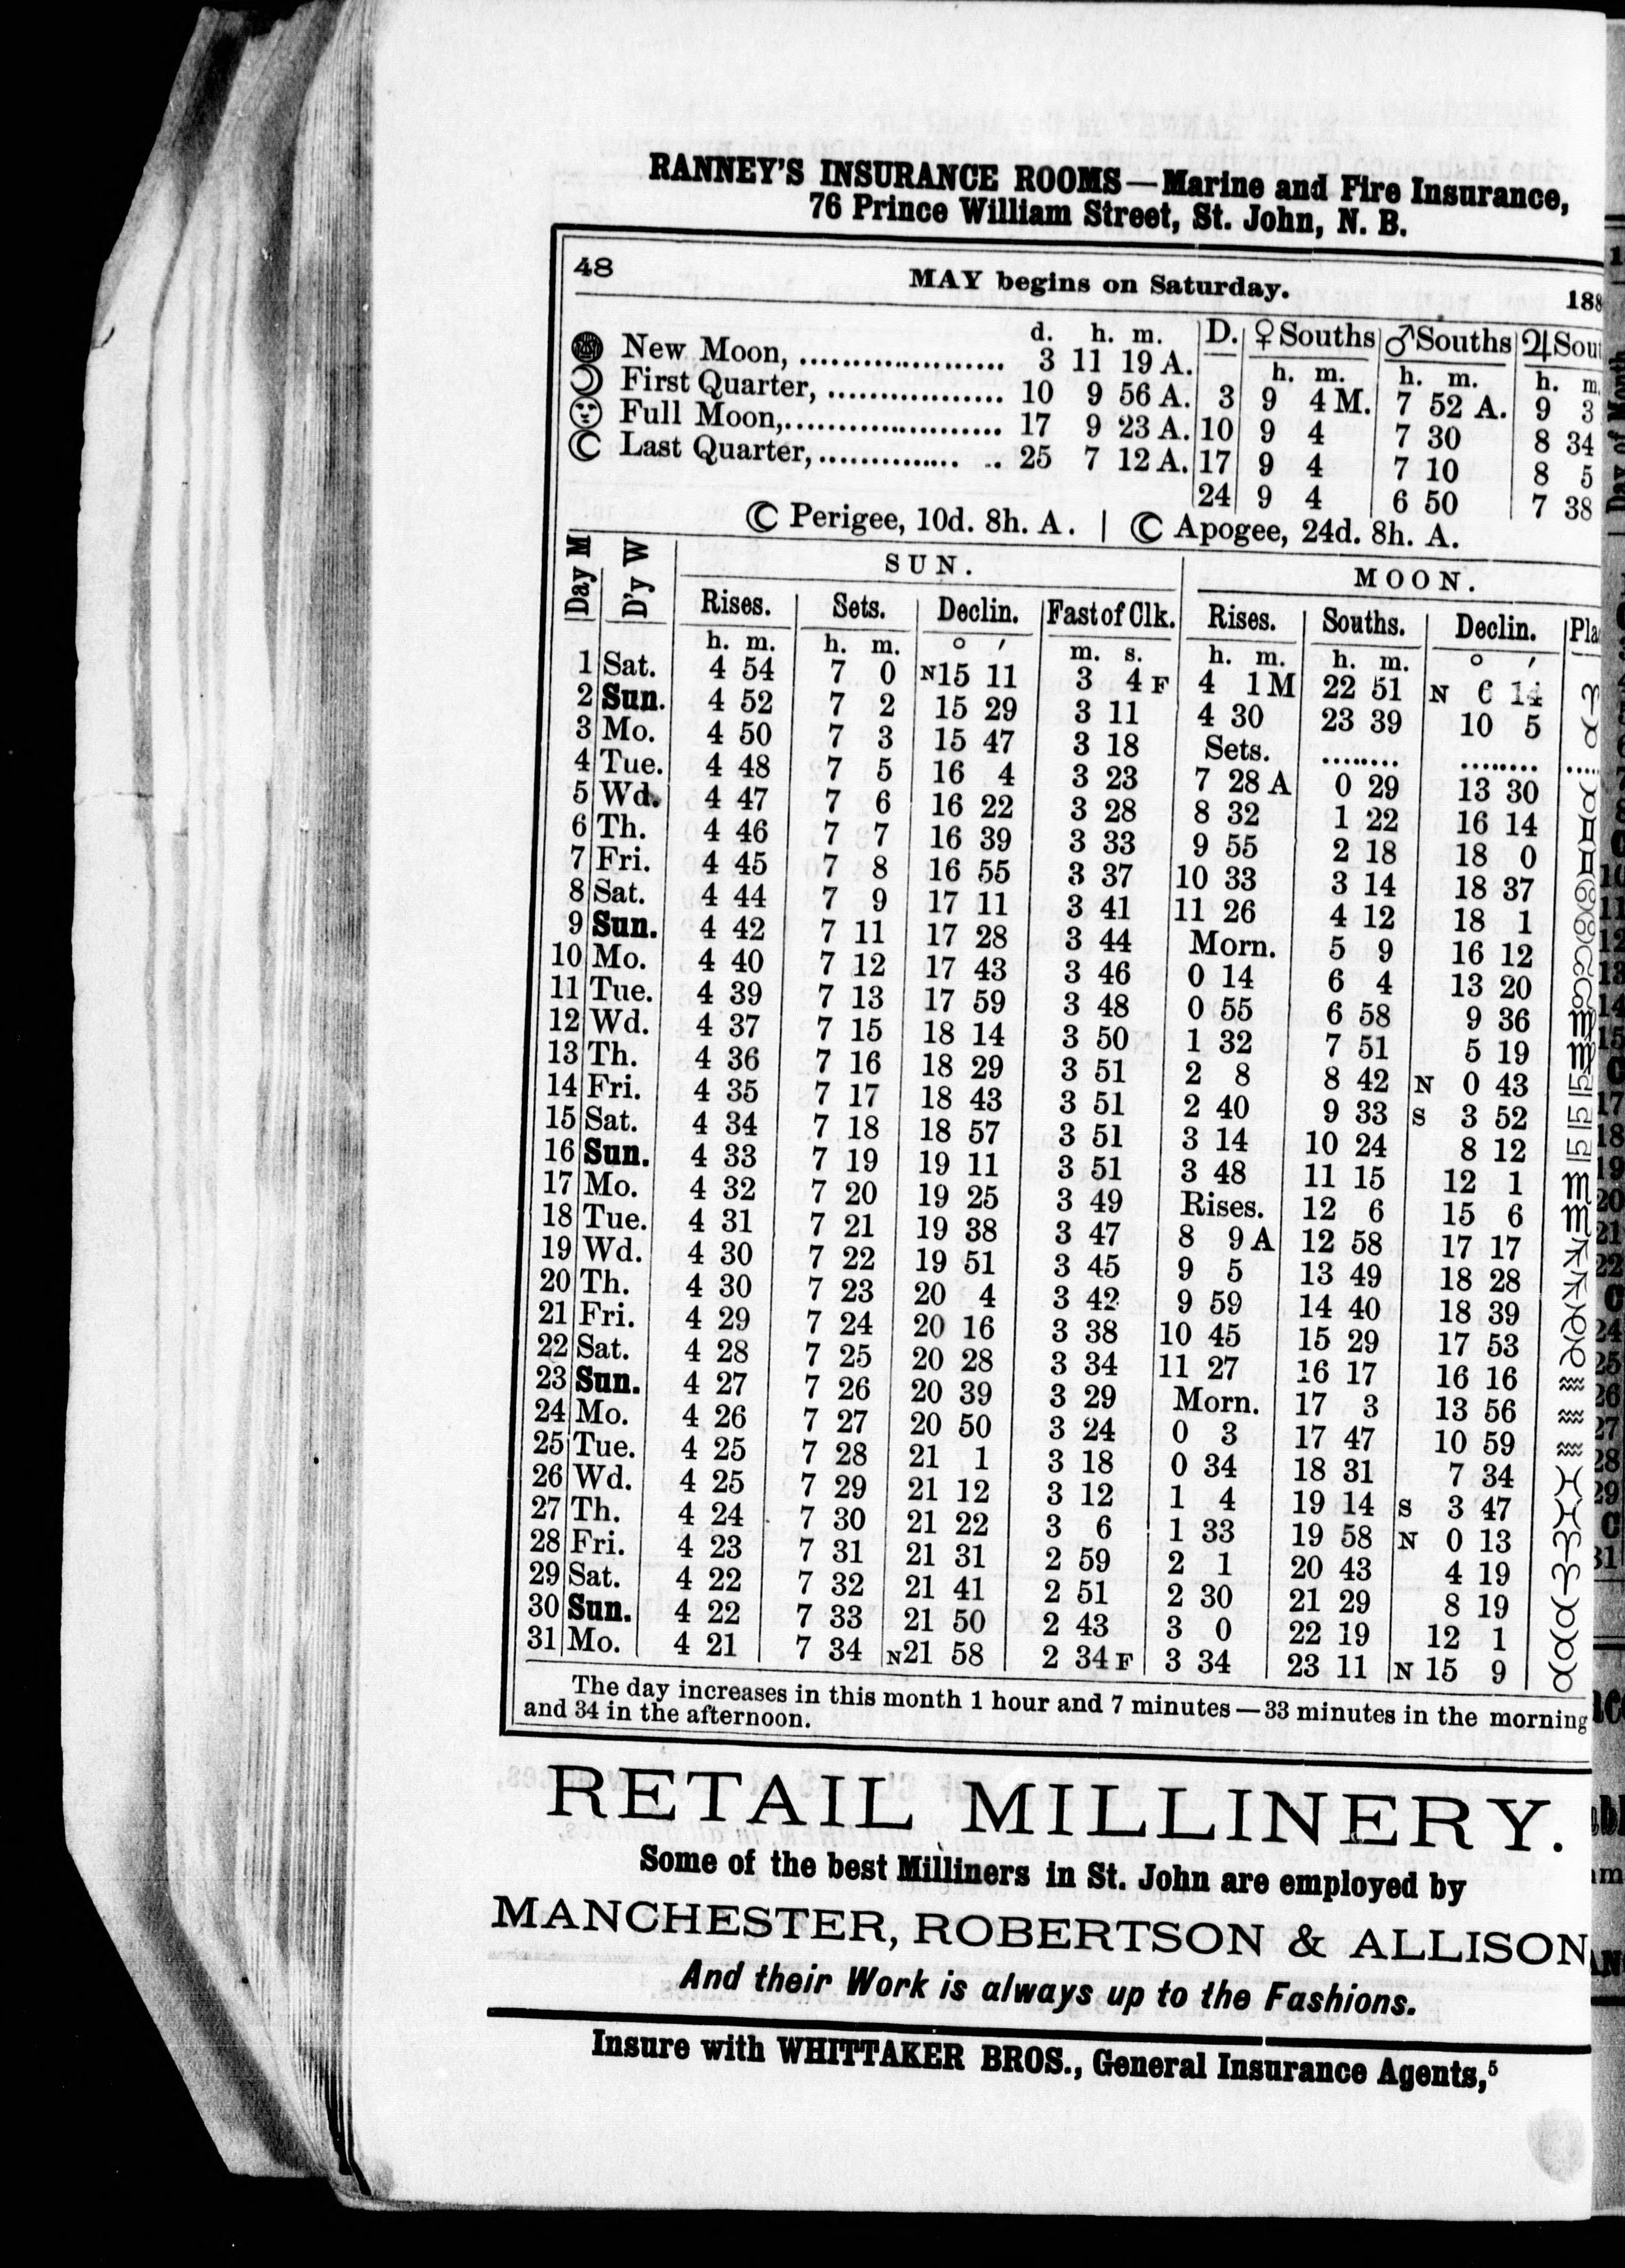 RANNEY'S INSURANCE ROOMS—Marine and Fire Insurance,
76 Prince William Street, St. John, N. B.
48 MAY begins on Saturday. 188
d. h. m. D. ♀ Souths ♂ Souths ♃ Sou
New Moon, .................... 3 11 19 A. h. m. h. m. h. m.
First Quarter, ................. 10 9 56 A. 3 9 4 M. 7 52 A. 9 3
Full Moon,..................... 17 9 23 A. 10 9 4 7 30 8 34
☾ Last Quarter,.............. .. 25 7 12 A. 17 9 4 7 10 8 5
24 9 4 6 50 7 38
☾ Perigee, 10d. 8h. A. | ☾ Apogee, 24d. 8h. A.
Day M D'y W SUN. MOON.
Rises. Sets. Declin. Fast of Clk. Rises. Souths. Declin. Pla
h. m. h. m. ° ′ m. s. h. m. h. m. ° ′
1 Sat. 4 54 7 0 N15 11 3 4 F 4 1 M 22 51 N 6 14 ♈
2 Sun. 4 52 7 2 15 29 3 11 4 30 23 39 10 5 ♉
3 Mo. 4 50 7 3 15 47 3 18 Sets. ........ ........ ....
4 Tue. 4 48 7 5 16 4 3 23 7 28 A 0 29 13 30 ♉
5 Wd. 4 47 7 6 16 22 3 28 8 32 1 22 16 14 ♊
6 Th. 4 46 7 7 16 39 3 33 9 55 2 18 18 0 ♊
7 Fri. 4 45 7 8 16 55 3 37 10 33 3 14 18 37 ♋
8 Sat. 4 44 7 9 17 11 3 41 11 26 4 12 18 1 ♋
9 Sun. 4 42 7 11 17 28 3 44 Morn. 5 9 16 12 ♌
10 Mo. 4 40 7 12 17 43 3 46 0 14 6 4 13 20 ♌
11 Tue. 4 39 7 13 17 59 3 48 0 55 6 58 9 36 ♍
12 Wd. 4 37 7 15 18 14 3 50 1 32 7 51 5 19 ♍
13 Th. 4 36 7 16 18 29 3 51 2 8 8 42 N 0 43 ♎
14 Fri. 4 35 7 17 18 43 3 51 2 40 9 33 S 3 52 ♎
15 Sat. 4 34 7 18 18 57 3 51 3 14 10 24 8 12 ♎
16 Sun. 4 33 7 19 19 11 3 51 3 48 11 15 12 1 ♏
17 Mo. 4 32 7 20 19 25 3 49 Rises. 12 6 15 6 ♏
18 Tue. 4 31 7 21 19 38 3 47 8 9 A 12 58 17 17 ♐
19 Wd. 4 30 7 22 19 51 3 45 9 5 13 49 18 28 ♐
20 Th. 4 30 7 23 20 4 3 42 9 59 14 40 18 39 ♑
21 Fri. 4 29 7 24 20 16 3 38 10 45 15 29 17 53 ♑
22 Sat. 4 28 7 25 20 28 3 34 11 27 16 17 16 16 ♒
23 Sun. 4 27 7 26 20 39 3 29 Morn. 17 3 13 56 ♒
24 Mo. 4 26 7 27 20 50 3 24 0 3 17 47 10 59 ♒
25 Tue. 4 25 7 28 21 1 3 18 0 34 18 31 7 34 ♓
26 Wd. 4 25 7 29 21 12 3 12 1 4 19 14 S 3 47 ♓
27 Th. 4 24 7 30 21 22 3 6 1 33 19 58 N 0 13 ♈
28 Fri. 4 23 7 31 21 31 2 59 2 1 20 43 4 19 ♈
29 Sat. 4 22 7 32 21 41 2 51 2 30 21 29 8 19 ♉
30 Sun. 4 22 7 33 21 50 2 43 3 0 22 19 12 1 ♉
31 Mo. 4 21 7 34 N21 58 2 34 F 3 34 23 11 N 15 9 ♉
The day increases in this month 1 hour and 7 minutes—33 minutes in the morning
and 34 in the afternoon.
RETAIL MILLINERY.
Some of the best Milliners in St. John are employed by
MANCHESTER, ROBERTSON & ALLISON
And their Work is always up to the Fashions.
Insure with WHITTAKER BROS., General Insurance Agents,⁵